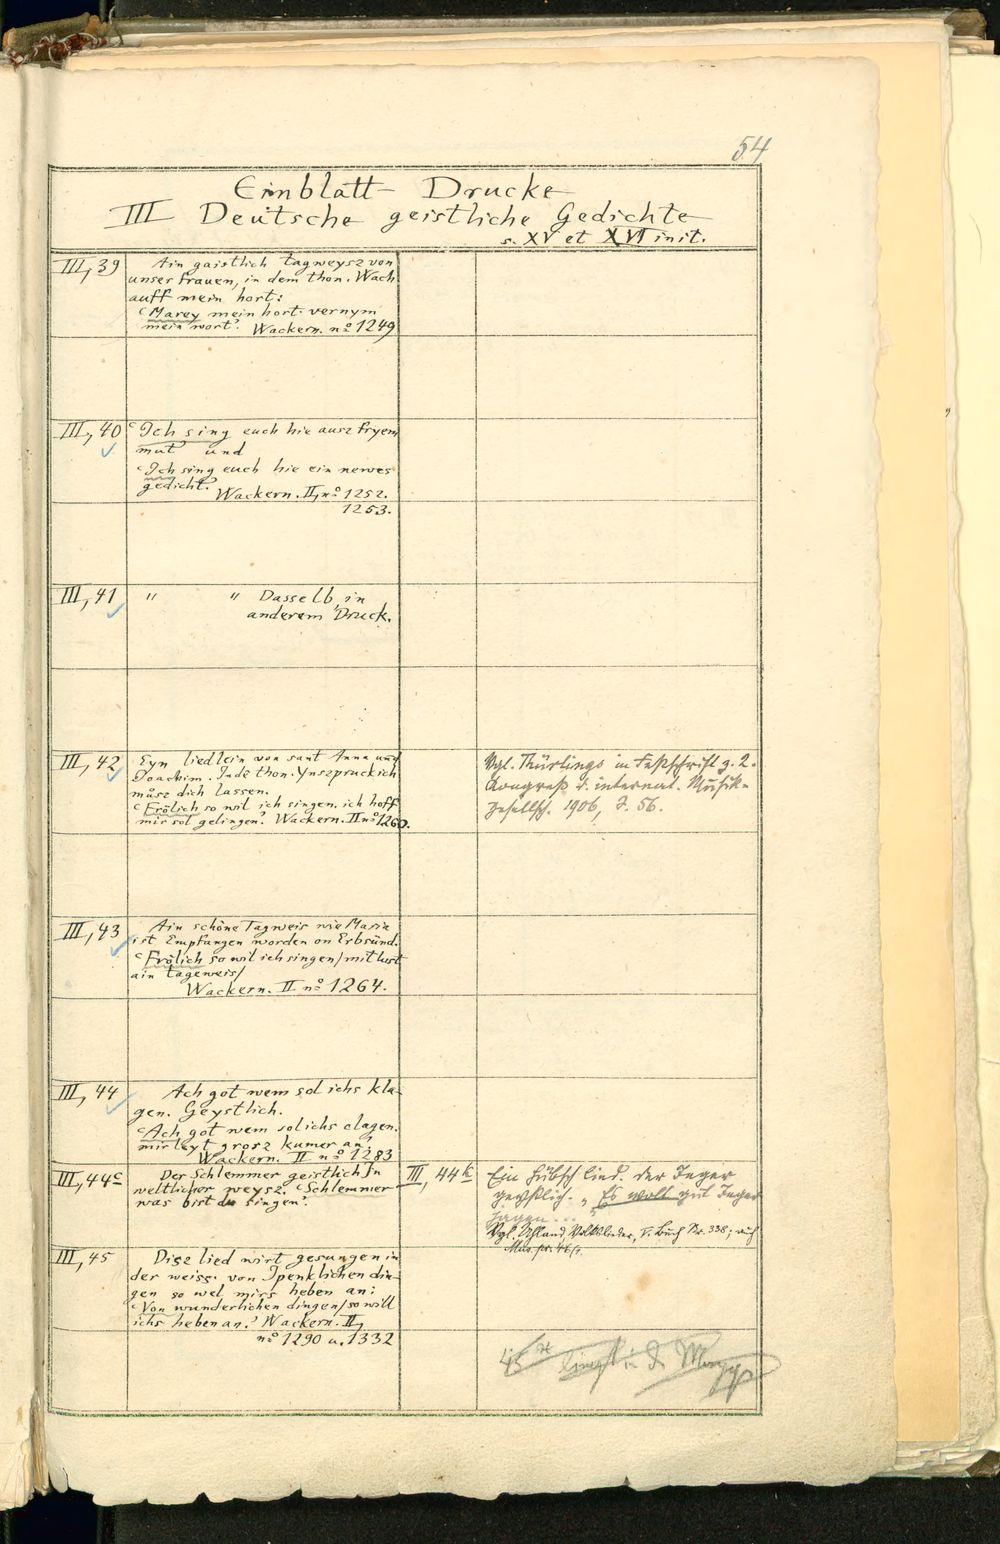 54
Einblatt-Drucke
III Deutsche geistliche Gedichte
s. XV et XVI init.
III, 39
Ain gaistlich tagweysz von
unser frauen, in dem thon. Wach
auff mein hort:
‹Marey mein hort. vernym
mein wort› Wackern. nº 1249
III, 40
‹Ich sing euch hie ausz fryem
mut› und
‹Ich sing euch hie ein newes
gedicht› Wackern. II, nº 1252.
1253.
III, 41
" " Dasselb, in
anderem Druck.
III, 42
Eyn liedlein von sant Anna und
Joachim. In de thon. Ynszpruck ich
müsz dich lassen.
‹Frölich so wil ich singen. ich hoff
mir sol gelingen› Wackern. II nº 1260.
Vgl. Thürlings in Festschrift z. 2.
Kongreß d. internat. Musik-
gesellsch. 1906, S. 56.
III, 43
Ain schöne Tagweis wie Maria
ist Empfangen worden on Erbsünd.
‹Frölich so wil ich singen / mit lust
ain tageweis /
Wackern. II nº 1264.
III, 44
Ach got wem sol ichs kla-
gen. Geystlich.
‹Ach got wem sol ichs clagen.
mir leyt grosz kumer an›
Wackern. II nº 1283
III, 44c
Der Schlemmer geistlich In
weltlicher weysz. ‹Schlemmer
was bist du singen›.
III, 44k
Ein hübsch lied. der Jeger
geystlich. „Es wolt gut Jeger
jagen...
Vgl. Uhland, Volkslieder, V. Buch Nr. 338; auch
III, 45
Disz lied wirt gesungen in
der weisz. von Ipenklichen din-
gen so wel mirs heben an:
‹Von wunderlichen dingen / so will
ichs heben an.› Wackern. II,
nº 1290 u. 1332
45 liegt in d.